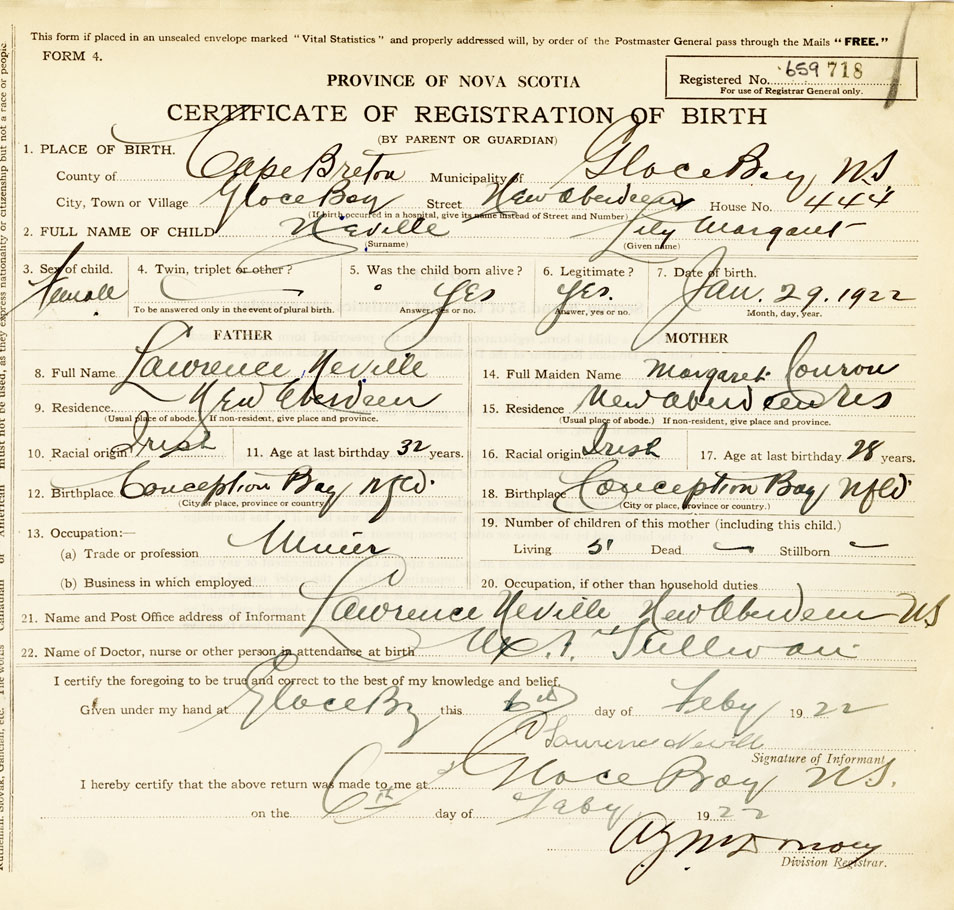 This form if placed in an unsealed envelope marked "Vital Statistics" and properly addressed will, by order of the Postmaster General pass through the Mails "FREE."
FORM 4.
Registered No. 659 718
For use of Registrar General only.
PROVINCE OF NOVA SCOTIA
CERTIFICATE OF REGISTRATION OF BIRTH
(BY PARENT OR GUARDIAN)
1. PLACE OF BIRTH.
County of Cape Breton Municipality of Glace Bay N.S
City, Town or Village Glace Bay Street New Aberdeen House No. 444
(If birth occurred in a hospital, give its name instead of Street and Number)
2. FULL NAME OF CHILD Neville Lily Margaret
(Surname) (Given name)
3. Sex of child. 4. Twin, triplet or other? 5. Was the child born alive? 6. Legitimate? 7. Date of birth.
female Yes Yes. Jan. 29. 1922
To be answered only in the event of plural birth. Answer, yes or no. Answer, yes or no. Month, day, year.
FATHER MOTHER
8. Full Name Lawrence Neville 14. Full Maiden Name Margaret
9. Residence New Aberdeen 15. Residence New Aberdeen NS
(Usual place of abode.) If non-resident, give place and province. (Usual place of abode.) If non-resident, give place and province.
10. Racial origin Irish 11. Age at last birthday 32 years. 16. Racial origin Irish 17. Age at last birthday 28 years.
12. Birthplace Conception Bay Nfld. 18. Birthplace Conception Bay Nfld
(City or place, province or country.) (City or place, province or country.)
13. Occupation:— 19. Number of children of this mother (including this child.)
(a) Trade or profession Miner Living 5 Dead — Stillborn —
(b) Business in which employed 20. Occupation, if other than household duties
21. Name and Post Office address of Informant Lawrence Neville New Aberdeen NS
22. Name of Doctor, nurse or other person in attendance at birth Sullivan
I certify the foregoing to be true and correct to the best of my knowledge and belief.
Given under my hand at Glace By this 6th day of Feby 1922
Lawrence Nevill
Signature of Informant
I hereby certify that the above return was made to me at Glace Bay N.S.
on the 6th day of Faby 1922
Division Registrar.